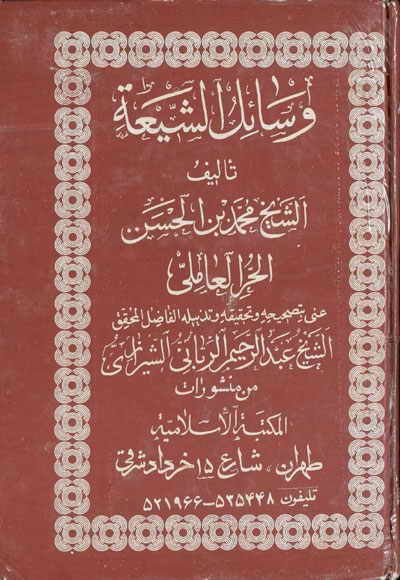 وسائل الشيعة
تأليف
الشيخ محمد بن الحسن
الحر العاملي
عنى بتصحيحه وتحقيقه وتذييله الفاضل المحقق
الشيخ عبد الرحيم الرباني الشيرازي
من منشورات
المكتبة الإسلامية
طهران ، شارع ١٥ خرداد شرقي
تليفون ٥٣٥٤٤٨-٥٢١٩٦٦